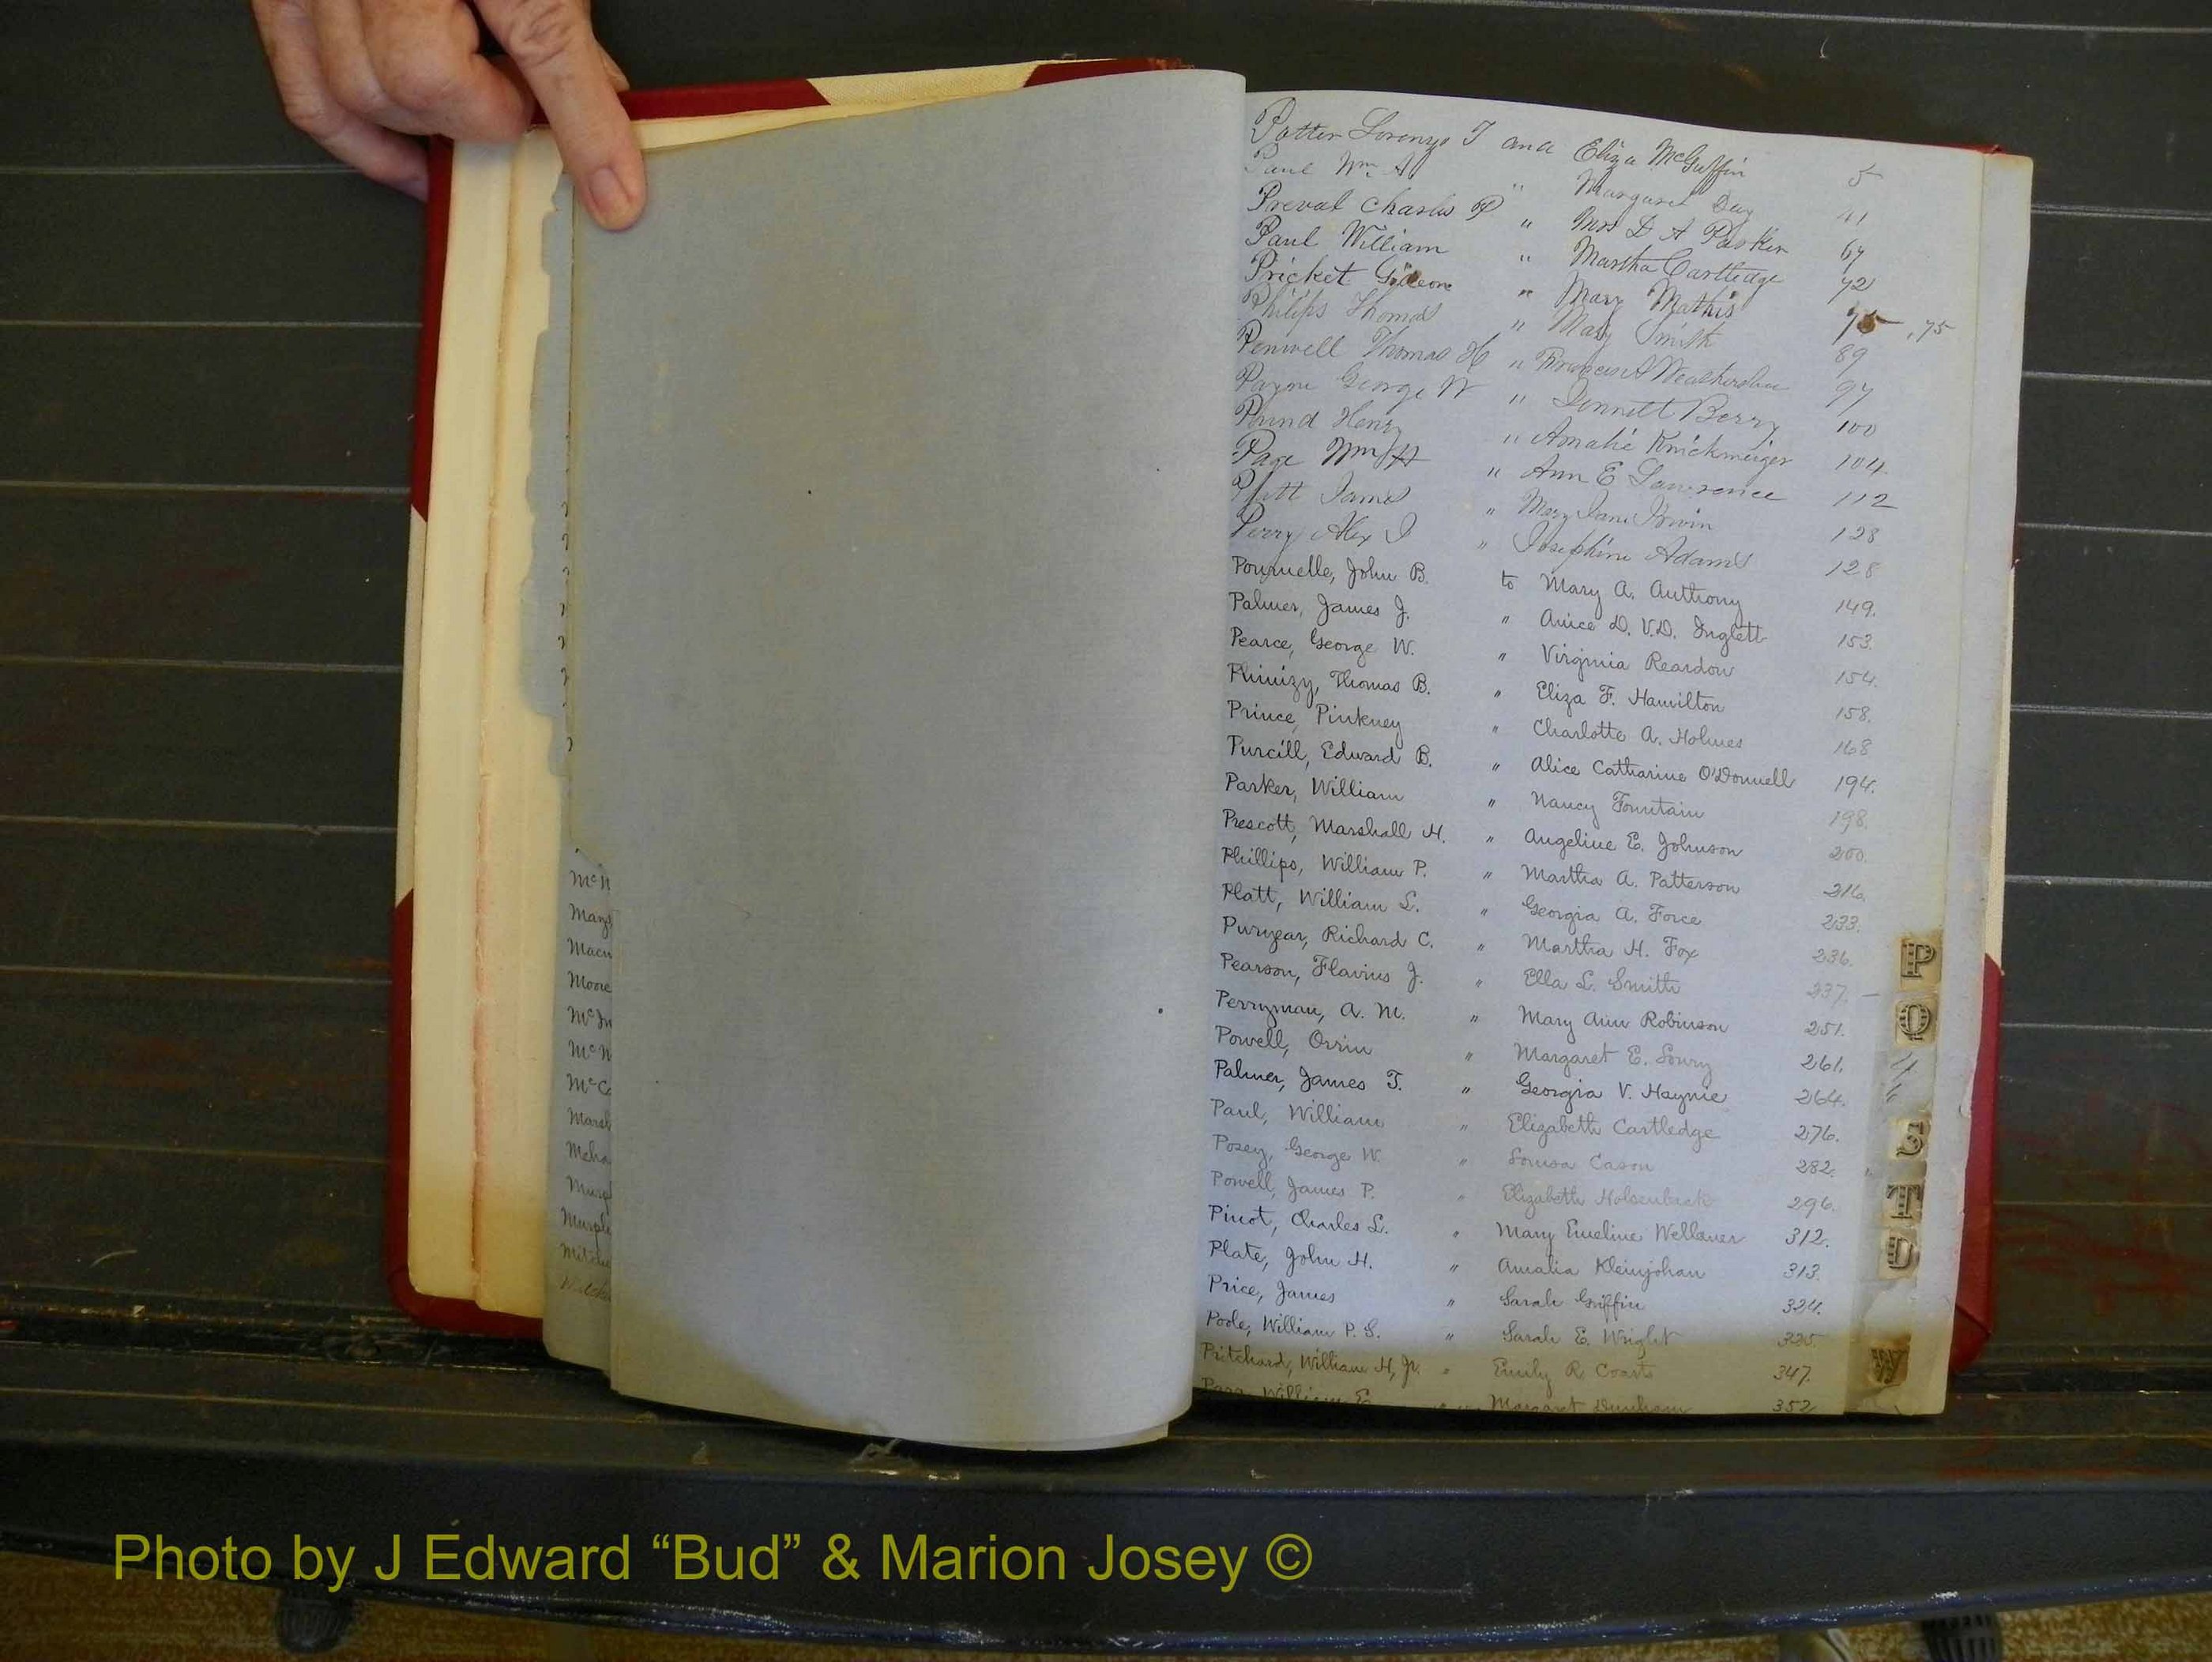 Patter Lorenzo T and Eliza McGuffin 5
Paul Wm A " Margaret Day 41
Preval Charles P " Mrs D A Parker 67
Paul William " Martha Cartledge 72
Pricket Gideon " Mary Mathis 75 , 75
Philips Thomas " Mary Smith 89
Penwell Thomas H " Frances A 97
Payne George W " Jennett Berry 100
Pound Henry " Amalie Knickmeiger 104
Page Wm H " Ann E Lawrence 112
Platt James " Mary Jane Irwin 128
Perry Alex J " Josephine Adams 128
Pournelle, John B. to Mary A. Anthony 149.
Palmer, James J. " Anice D. V.D. Inglett 153.
Pearce, George W. " Virginia Reardon 154.
Phinizy, Thomas B. " Eliza F. Hamilton 158.
Prince, Pinkney " Charlotte A. Holmes 168
Purcill, Edward B. " Alice Catharine O'Donnell 194.
Parker, William " Nancy Fountain 198.
Prescott, Marshall H. " Angeline E. Johnson 200.
Phillips, William P. " Martha A. Patterson 216.
Platt, William L. " Georgia A. Force 233.
Puryear, Richard C. " Martha H. Fox 236.
Pearson, Flavius J. " Ella L. Smith 237. —
Perryman, A. M. " Mary Ann Robinson 251.
Powell, Orrin " Margaret E. Lowry 261.
Palmer, James T. " Georgia V. Haynie 264.
Paul, William " Elizabeth Cartledge 276.
Posey, George W. " Louisa Cason 282.
Powell, James P. " Elizabeth Holsenback 296.
Pinot, Charles L. " Mary Emeline Wellauer 312.
Plate, John H. " Amalia Kleinjohan 313.
Price, James " Sarah Griffin 324.
Poole, William P. S. " Sarah E. Wright 325.
Pritchard, William H, Jr. " Emily R. Coarts 347.
William E. " Margaret Dunham 352
P
Q
S
T
D
W
McN
Mang
Macn
Moore
McIn
McN
McCa
Marsh
Meha
Murp
Murph
Mitche
Photo by J Edward “Bud” & Marion Josey ©